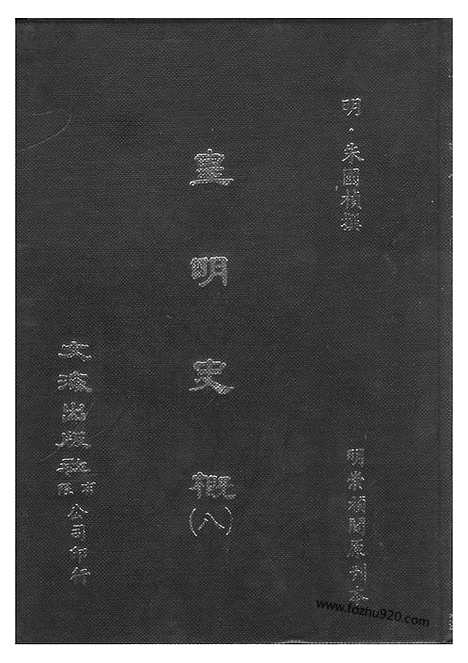 明·朱國禎撰
明崇禎間原刊本
皇明史概
(八)
文海出版社有限公司印行
www.fozhu920.com